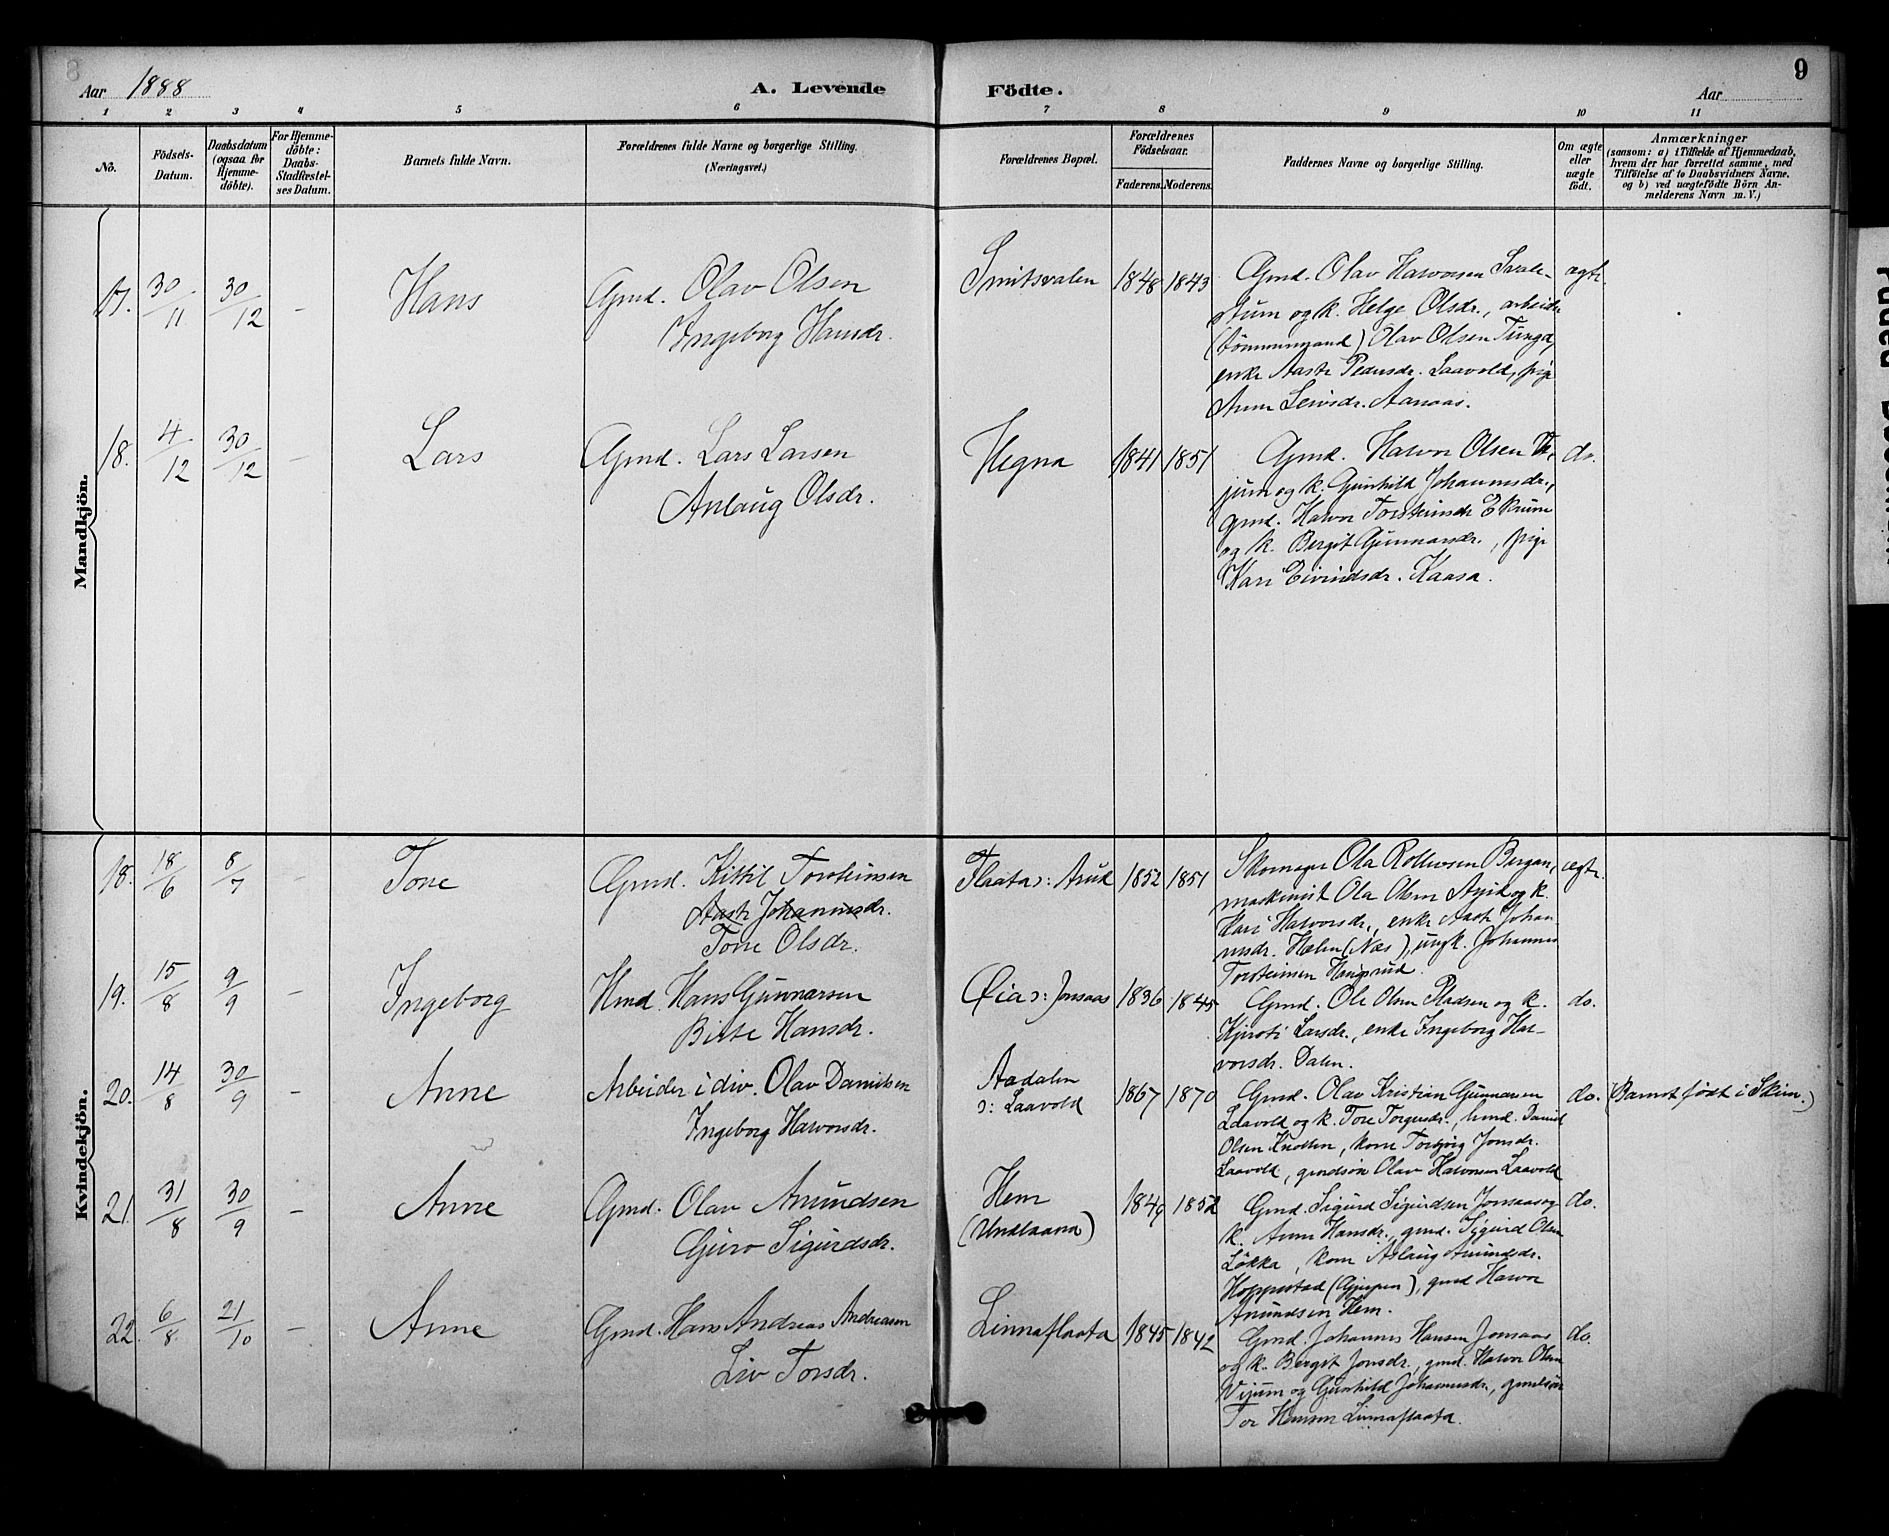 8
Aar 1888
A. Levende Födte.
Aar
9
1 2 3 4 5 6 7 8 9 10 11
No.
Födsels-Datum.
Daabsdatum (ogsaa for Hjemme-döbte).
For Hjemme-döbte: Daabs-Stadfæstel-ses Datum.
Barnets fulde Navn.
Forældrenes fulde Navne og borgerlige Stilling.
(Næringsvei.)
Forældrenes Bopæl.
Forældrenes Födselsaar.
Faderens.
Moderens.
Faddernes Navne og borgerlige Stilling.
Om ægte eller uægte födt.
Anmærkninger
(saasom: a) i Tilfælde af Hjemmedaab,
hvem der har forrettet samme, med
Tilföielse af to Daabsvidners Navne.
og b) ved uægtefödte Börn An-
melderens Navn m. V.)
Mandkjön.
17. 30/11 30/12 – Hans Gmd. Olav Olsen
Ingeborg Hansdr.
Smitsvalen 1848 1843
Gmd. Olav Halvorsen
og k. Helge Olsdr., arbeider
(tömmermand) Olav Olsen Tunga,
enke Aaste Pedersdr. Laavold, pige
Anne Leivsdr. Aanaas.
ægte
18. 4/12 30/12 – Lars Gmd. Lars Larsen
Anlaug Olsdr.
Hegna 1841 1851
Gmd. Halvor Olsen Vi-
jum og k. Gunhild Johannesdr.,
gmd. Halvor Torsteinsdr Ekrum
og k. Bergit Gunnarsdr., pige
Kari Eivindsdr. Kaasa.
do.
Kvindekjön.
18. 18/6 8/7 – Tone Gmd. Kittil Torsteinsen
Aaste Johannesdr.
Tone Olsdr.
Flaata ɔ: Aruk 1852 1851
Skomager Ola Rollevsen Bergan,
maskinist Ola Olsen og k.
Kari Halvorsdr., enke Aaste Johan
nesdr. Hælen (Næs), ungk. Johannes
Torsteinsen Haugerud.
ægte.
19. 15/8 9/9 – Ingeborg Hmd. Hans Gunnarsen
Birte Hansdr.
Øia ɔ: Jonsaas 1836 1845
Gmd. Ole Olsen Pladsen og k.
Kjersti Larsdr., enke Ingeborg Hal-
vorsdr. Dalen.
do.
20. 14/8 30/9 – Anne Arbeider i div. Olav Danielsen
Ingeborg Halvorsdr.
Aadalen
ɔ: Laavold
1867 1870
Gmd. Olav Kristian Gunnarsen
Laavold og k. Tore Torgersdr., hmd. Daniel
Olsen Knotten, kone Torbjørg Jonsdr.
Laavold, gmdsön Olav Halvorsen Laavold
do. (Barnet födt i Skien.)
21. 31/8 30/9 – Anne Gmd. Olav Amundsen
Guro Sigurdsdr.
Hem
(Undlaand)
1849 1852
Gmd. Sigurd Sigurdsen Jonsaas og
k. Anne Hansdr., gmd. Sigurd Olsen
Løkka, kone Aslaug Amundsdr.
Hoppestad (Gjerpen), gmd Halvor
Amundsen Hem.
do.
22. 6/8 21/10 – Anne Gmd. Hans Andreas Andreasen
Liv Torsdr.
Linnaflaata 1845 1842
Gmd. Johannes Hansen Jonsaas
og k. Bergit Jonsdr., gmd. Halvor Olsen
Vijum og Gunhild Johannesdr., gmdsön
Tor Hansen Linnaflaata.
do.